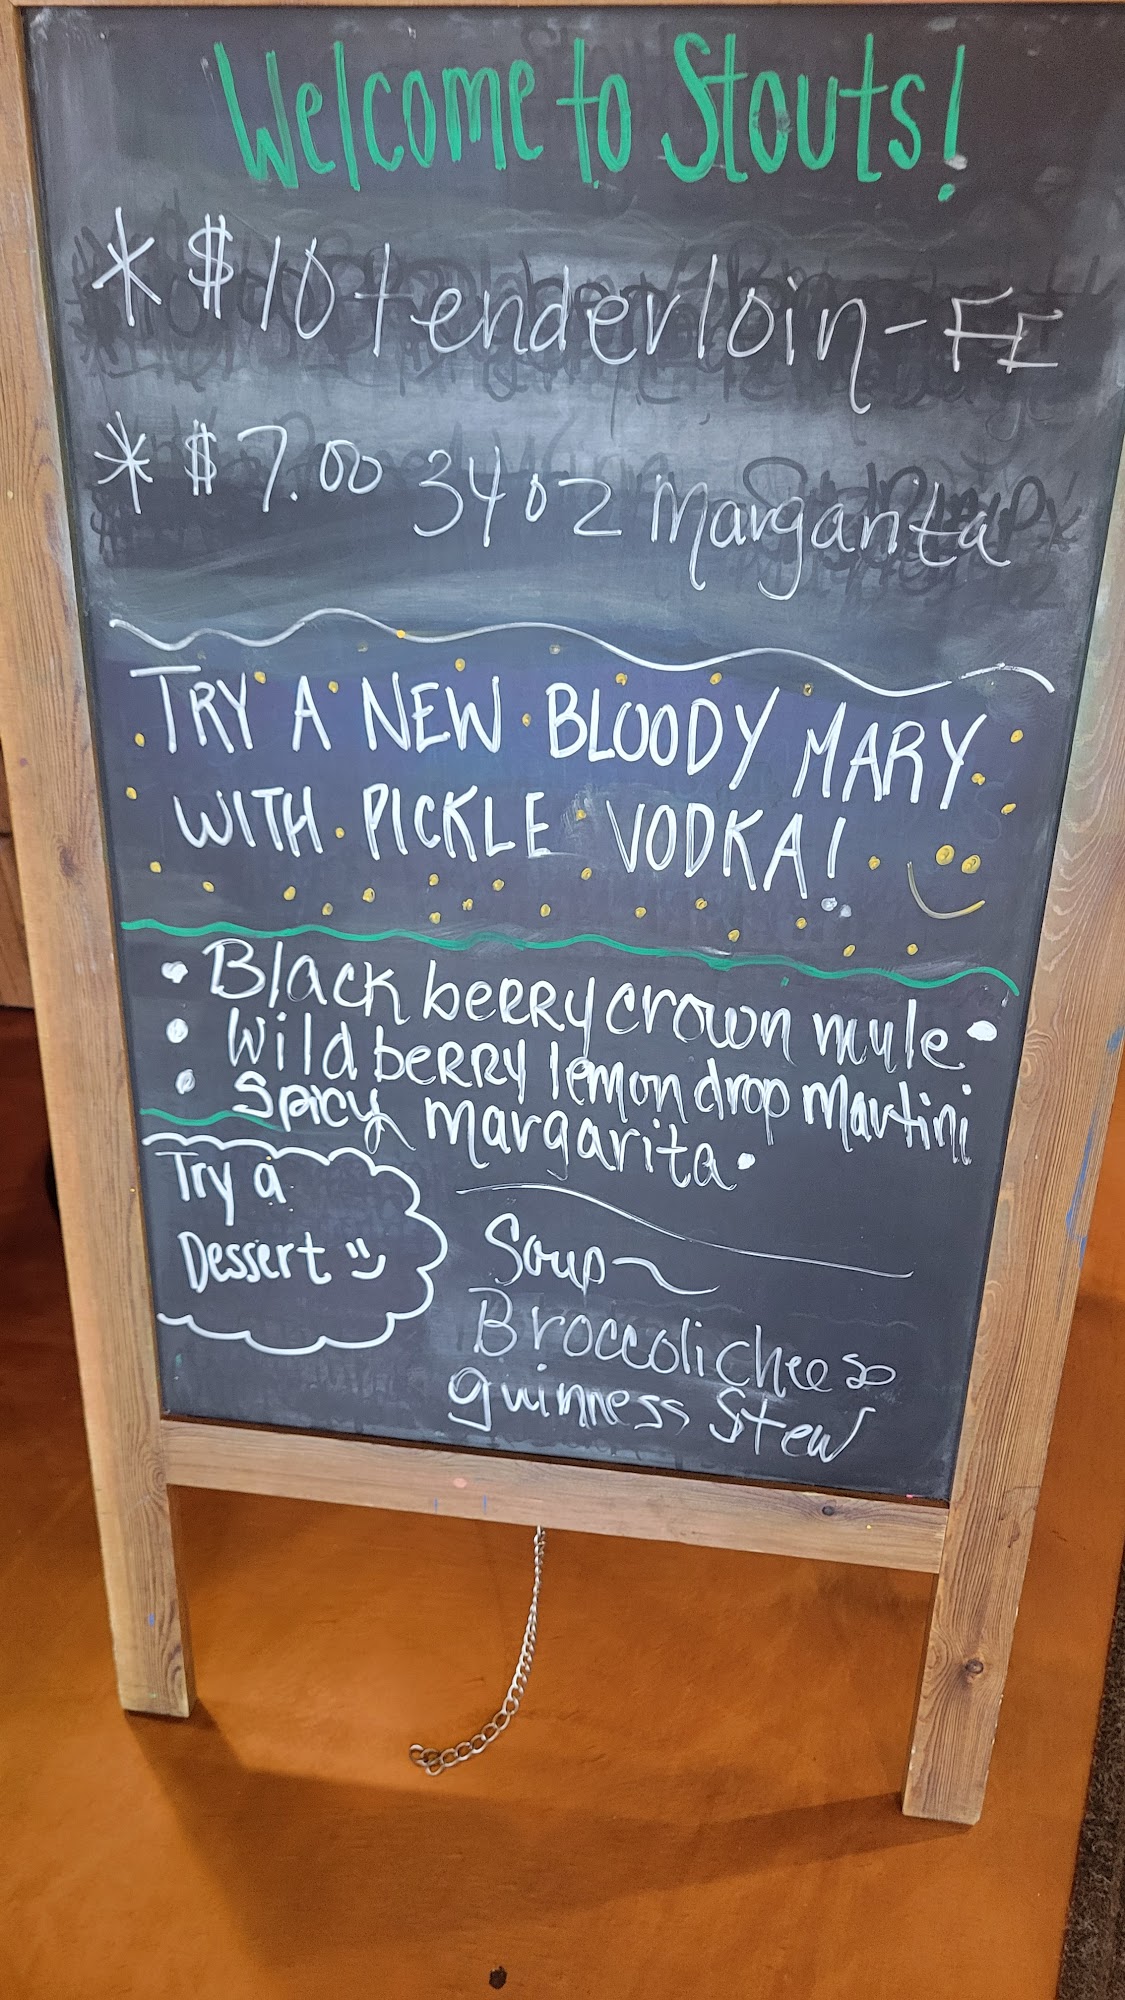 Welcome to Stouts!
* $10 tenderloin - FF
* $7.00 34oz Margarita
TRY A NEW BLOODY MARY
WITH PICKLE VODKA!
• Blackberry crown mule •
• Wildberry lemon drop Martini
• Spicy margarita •
Try a
Dessert
Soup~
Broccoli cheese
guinness Stew